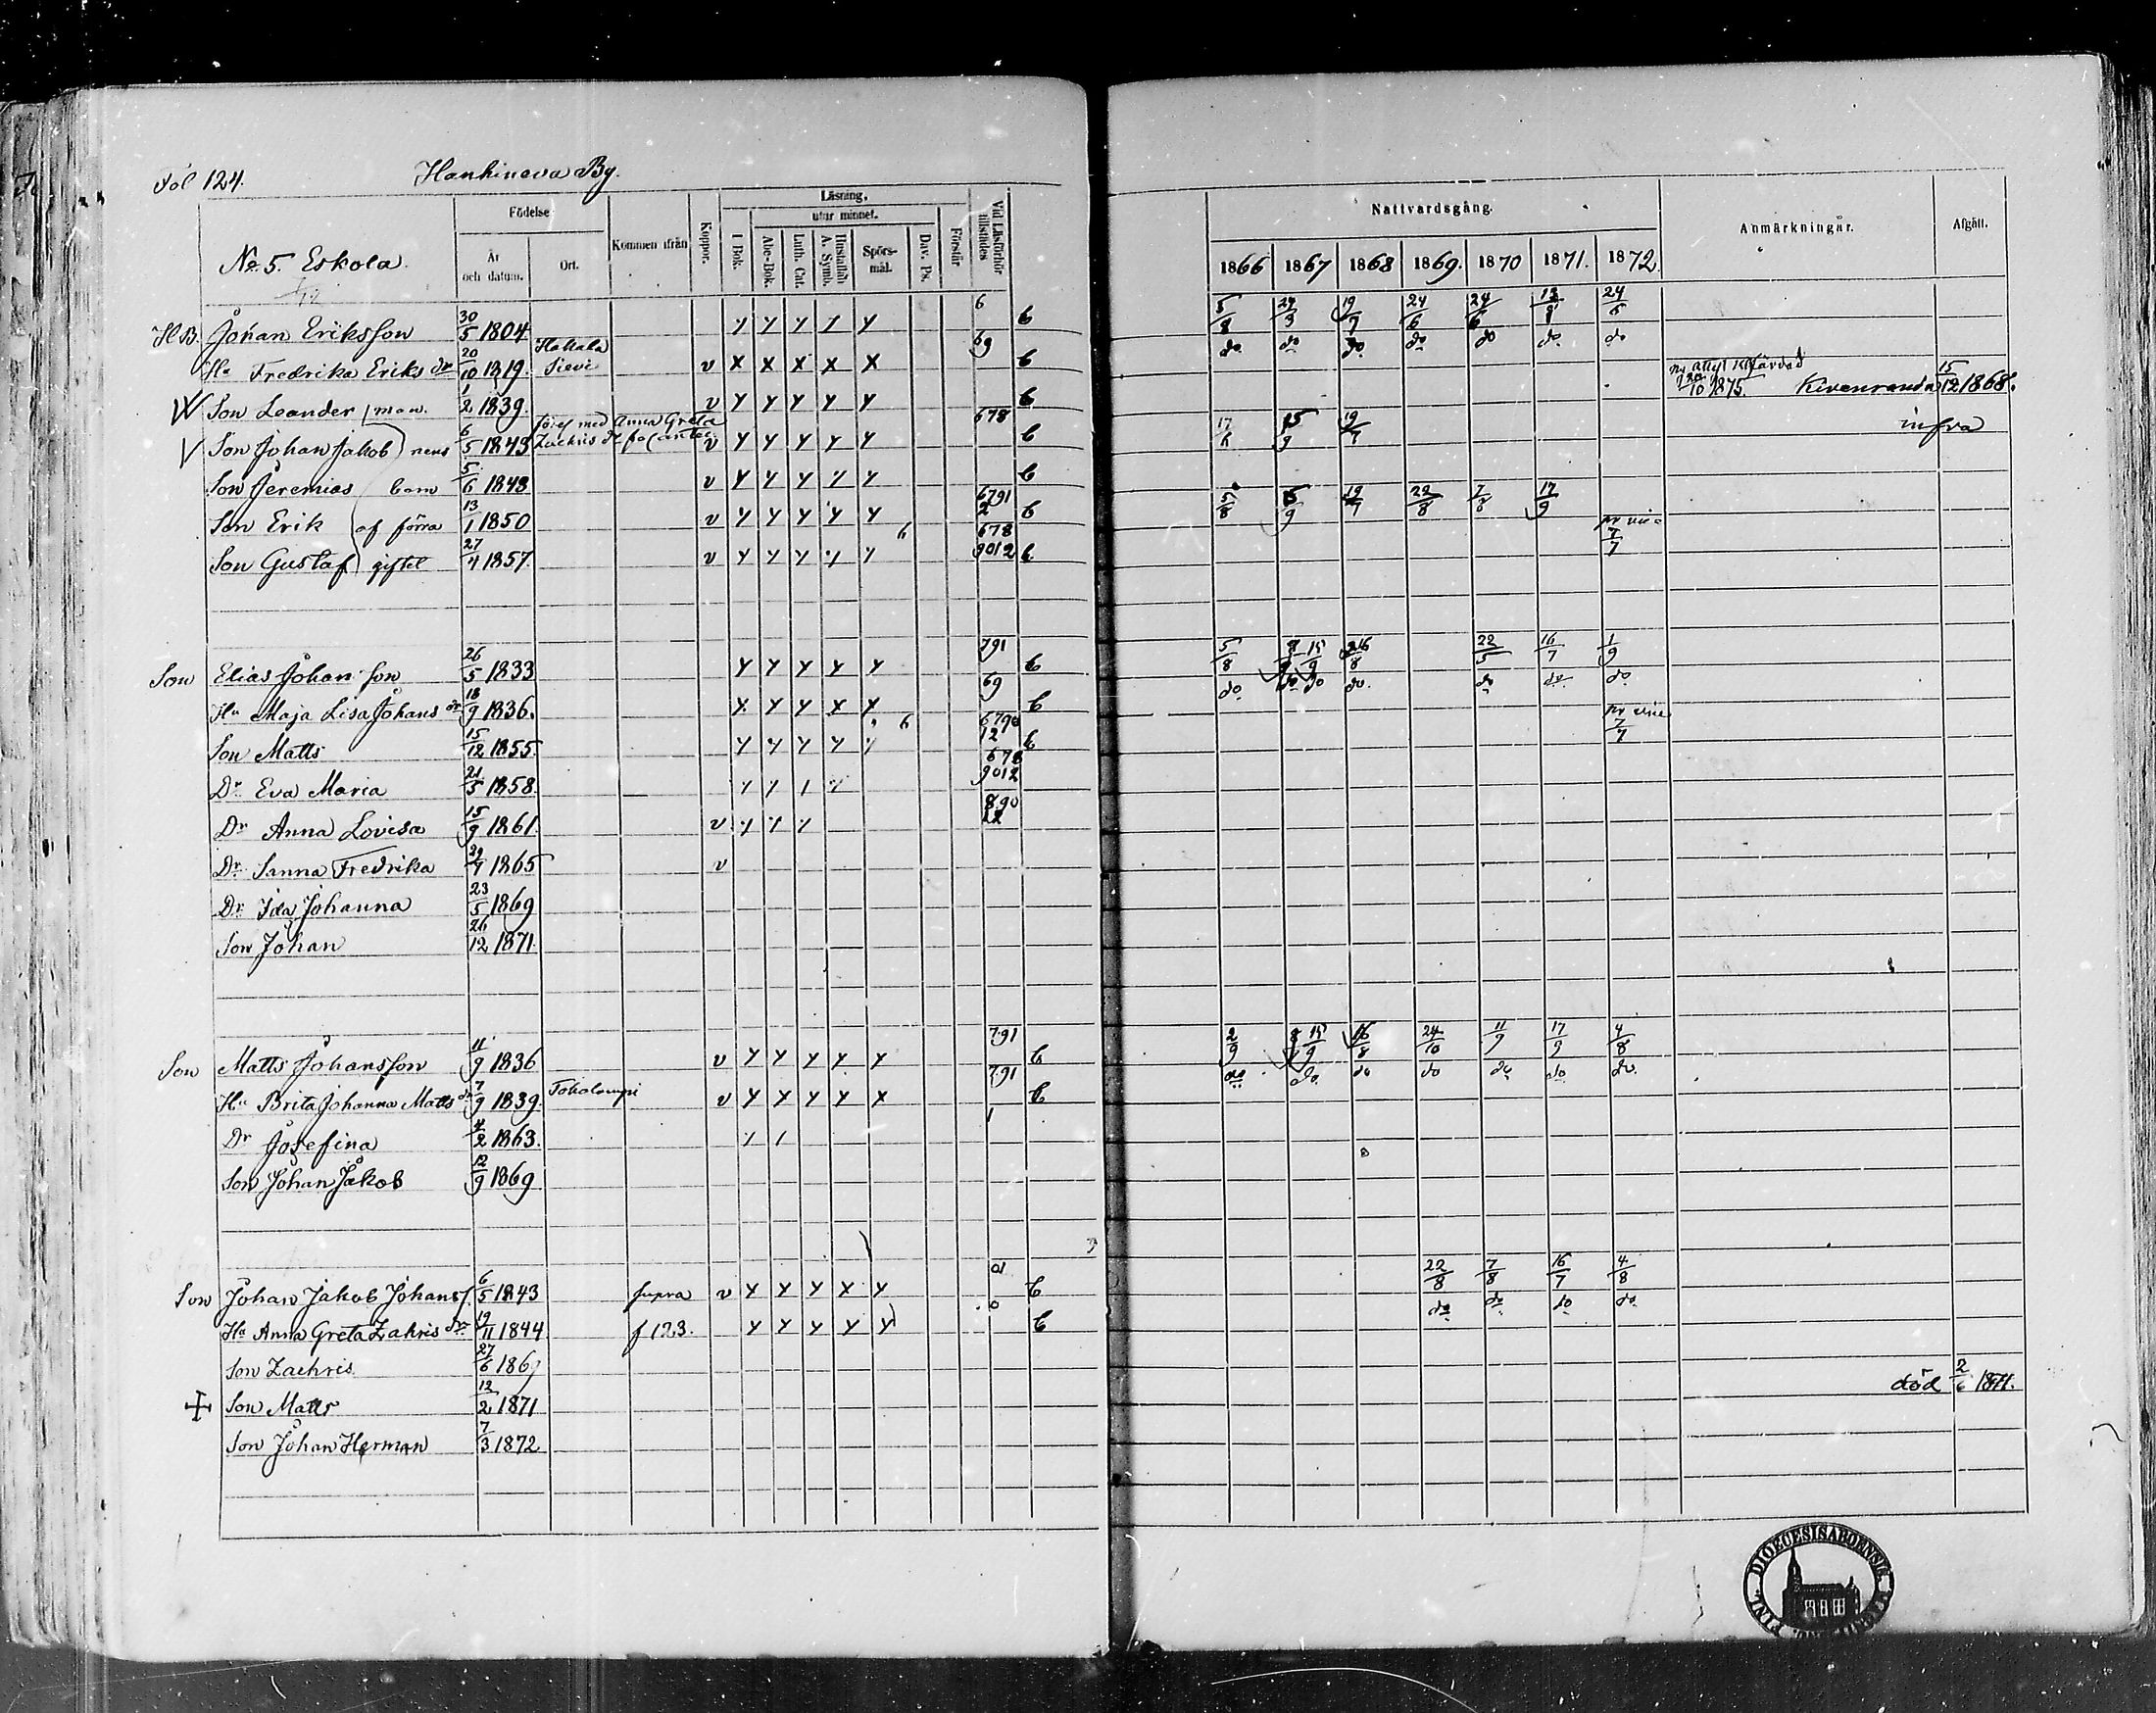 Fol 124. Hanhineva By.
Födelse Kommen ifrån Koppor. Läsning, Vid Läsförhör tillstädes Nattvardsgång. Anmärkningar. Afgått.
utur minnet.
No. 5. Eskola. År och datum. Ort. I Bok. Abc-Bok. Luth. Cat. Hustaflan A. Symb. Spörsmål. Dav. Ps. Förstår 1866 1867 1868 1869. 1870 1871. 1872.
HB. Johan Eriksson 30/5 1804 y y y y y 6 b 5/8 19/7 24/6 24/6 24/6
Hu Fredrika Eriks dr 20/10 1819. Sievi v x x x x x 69 b do do do do do do do
Son Leander man. 1/2 1839. v y y y y y b 1875. Kivenranda 15/12 1868.
V Son Johan Jakob nens 6/5 1843 med Anna Greta Zachris dr v y y y y y 678 b 17/6 15/9 19/7 infra
Son Jeremias barn 5/6 1848 v y y y y y b
Son Erik af förra 13/1 1850 v y y y y y 6791 2 b 5/8 15/9 19/7 22/8 7/8 17/9
Son Gustaf giftet 27/4 1857. v y y y y y 6 678 9012 b 7/7
Son Elias Johansson 26/5 1833 y y y y y 791 b 5/8 8/9 15/9 16/8 22/5 16/7 1/9
Hu Maja Lisa Johans dr 18/9 1836. x y y x x 69 b do do do do. do do do
Son Matts 15/12 1855. y y y y y 6 6790 12 b 7/7
Dr Eva Maria 21/5 1858. 678 9012
Dr Anna Lovisa 15/9 1861. v 890
Dr Sanna Fredrika 1865 v
Dr Ida Johanna 23/5 1869
Son Johan 26/12 1871.
Son Matts Johansson 11/9 1836 v y y y y y 791 b 2/9 15/9 16/8 24/10 11/9 17/9 4/8
Hu Brita Johanna Matts dr 7/9 1839. Toholampi v y y y y x 791 b do do. do do do do do.
Dr Josefina 4/2 1863. 1
Son Johan Jakob 12/9 1869
Son Johan Jakob Johans 6/5 1843 supra v y y y x y 01 b 22/8 7/8 16/7 4/8
Hu Anna Greta Zakris dr 19/11 1844 f 123. y y y y y 0 b do do do do
Son Zachris 27/6 1869
Son Matts 12/2 1871 död 2/6 1871.
Son Johan Herman 7/3 1872
DIOECESIS ABOENSIS